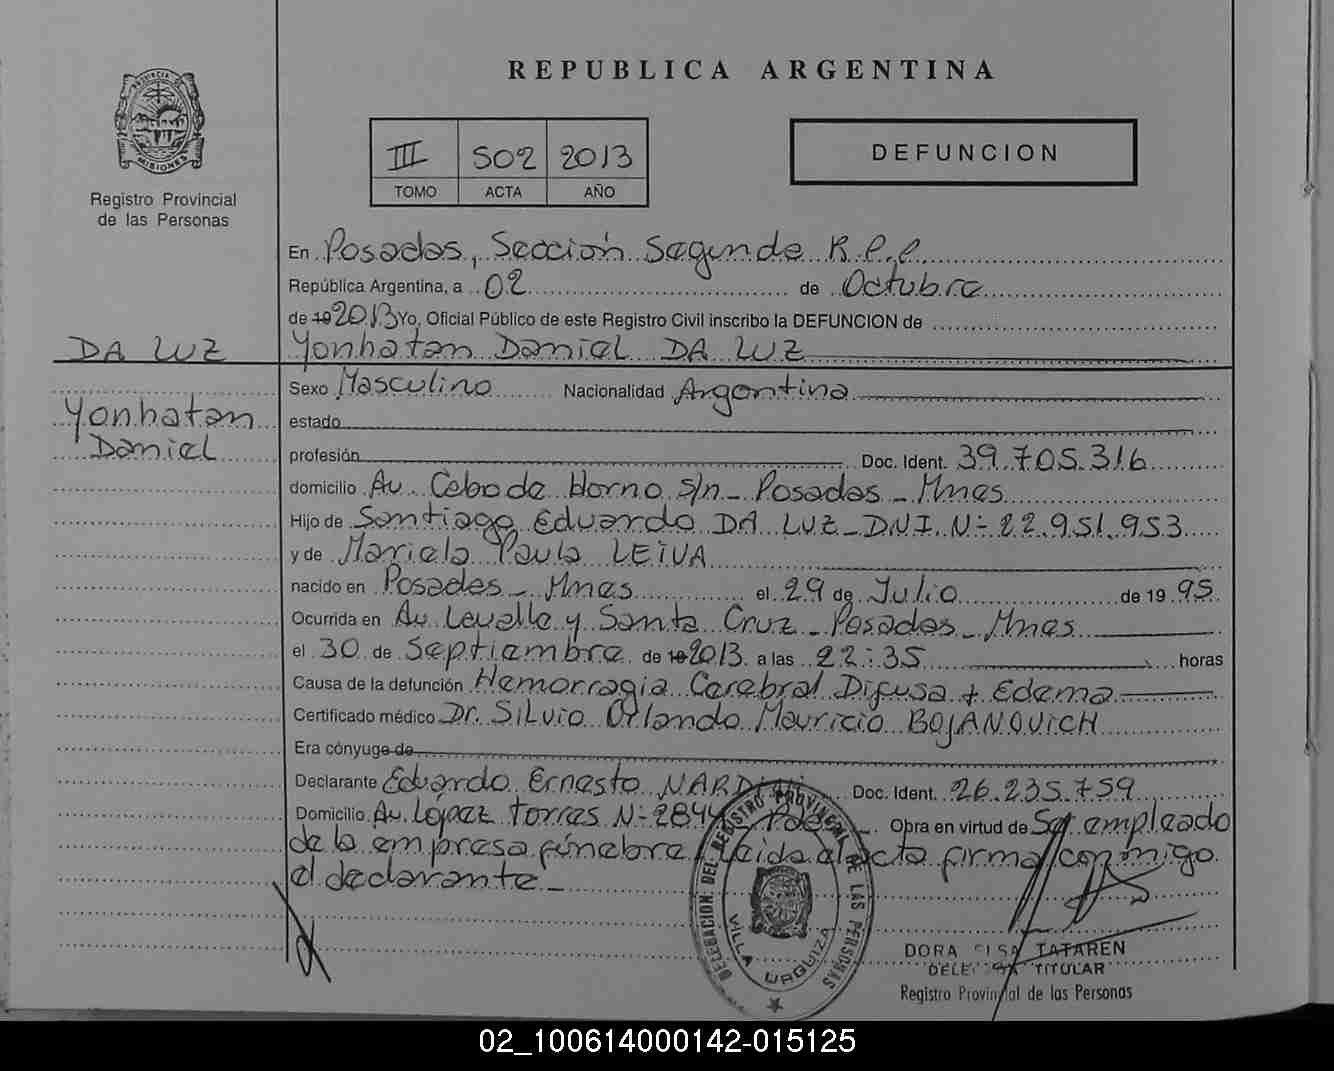 REPUBLICA ARGENTINA
PROVINCIA
MISIONES
Registro Provincial
de las Personas
III 502 2013
TOMO ACTA AÑO
DEFUNCION
En Posadas, Sección Segunda R.P.P.
República Argentina, a 02 de Octubre
de 19 2013 Yo, Oficial Público de este Registro Civil inscribo la DEFUNCION de
DA LUZ Yonhatan Daniel DA LUZ
Sexo Masculino Nacionalidad Argentina
Yonhatan estado
Daniel profesión Doc. Ident. 39.705.316
domicilio Av. Cabo de Horno s/n - Posadas - Mnes
Hijo de Santiago Eduardo DA LUZ - DNI. N- 22.951.953
y de Mariela Paula LEIVA
nacido en Posadas - Mnes el 29 de Julio de 19 95
Ocurrida en Av. Lavalle y Santa Cruz - Posadas - Mnes
el 30 de Septiembre de 19 2013 a las 22:35 horas
Causa de la defunción Hemorragia Cerebral Difusa + Edema
Certificado médico Dr. Silvio Orlando Mauricio BOJANOVICH
Era cónyuge de
Declarante Eduardo Ernesto Doc. Ident. 26.235.759
Domicilio Av. López Torres N- Obra en virtud de Ser empleado
de la empresa fúnebre, Leida el acta firma conmigo
el declarante -
DELEGACION DEL REGISTRO PROVINCIAL DE LAS PERSONAS
VILLA URQUIZA
DORA ELSA TATAREN
DELEGADA TITULAR
Registro Provincial de las Personas
02_100614000142-015125